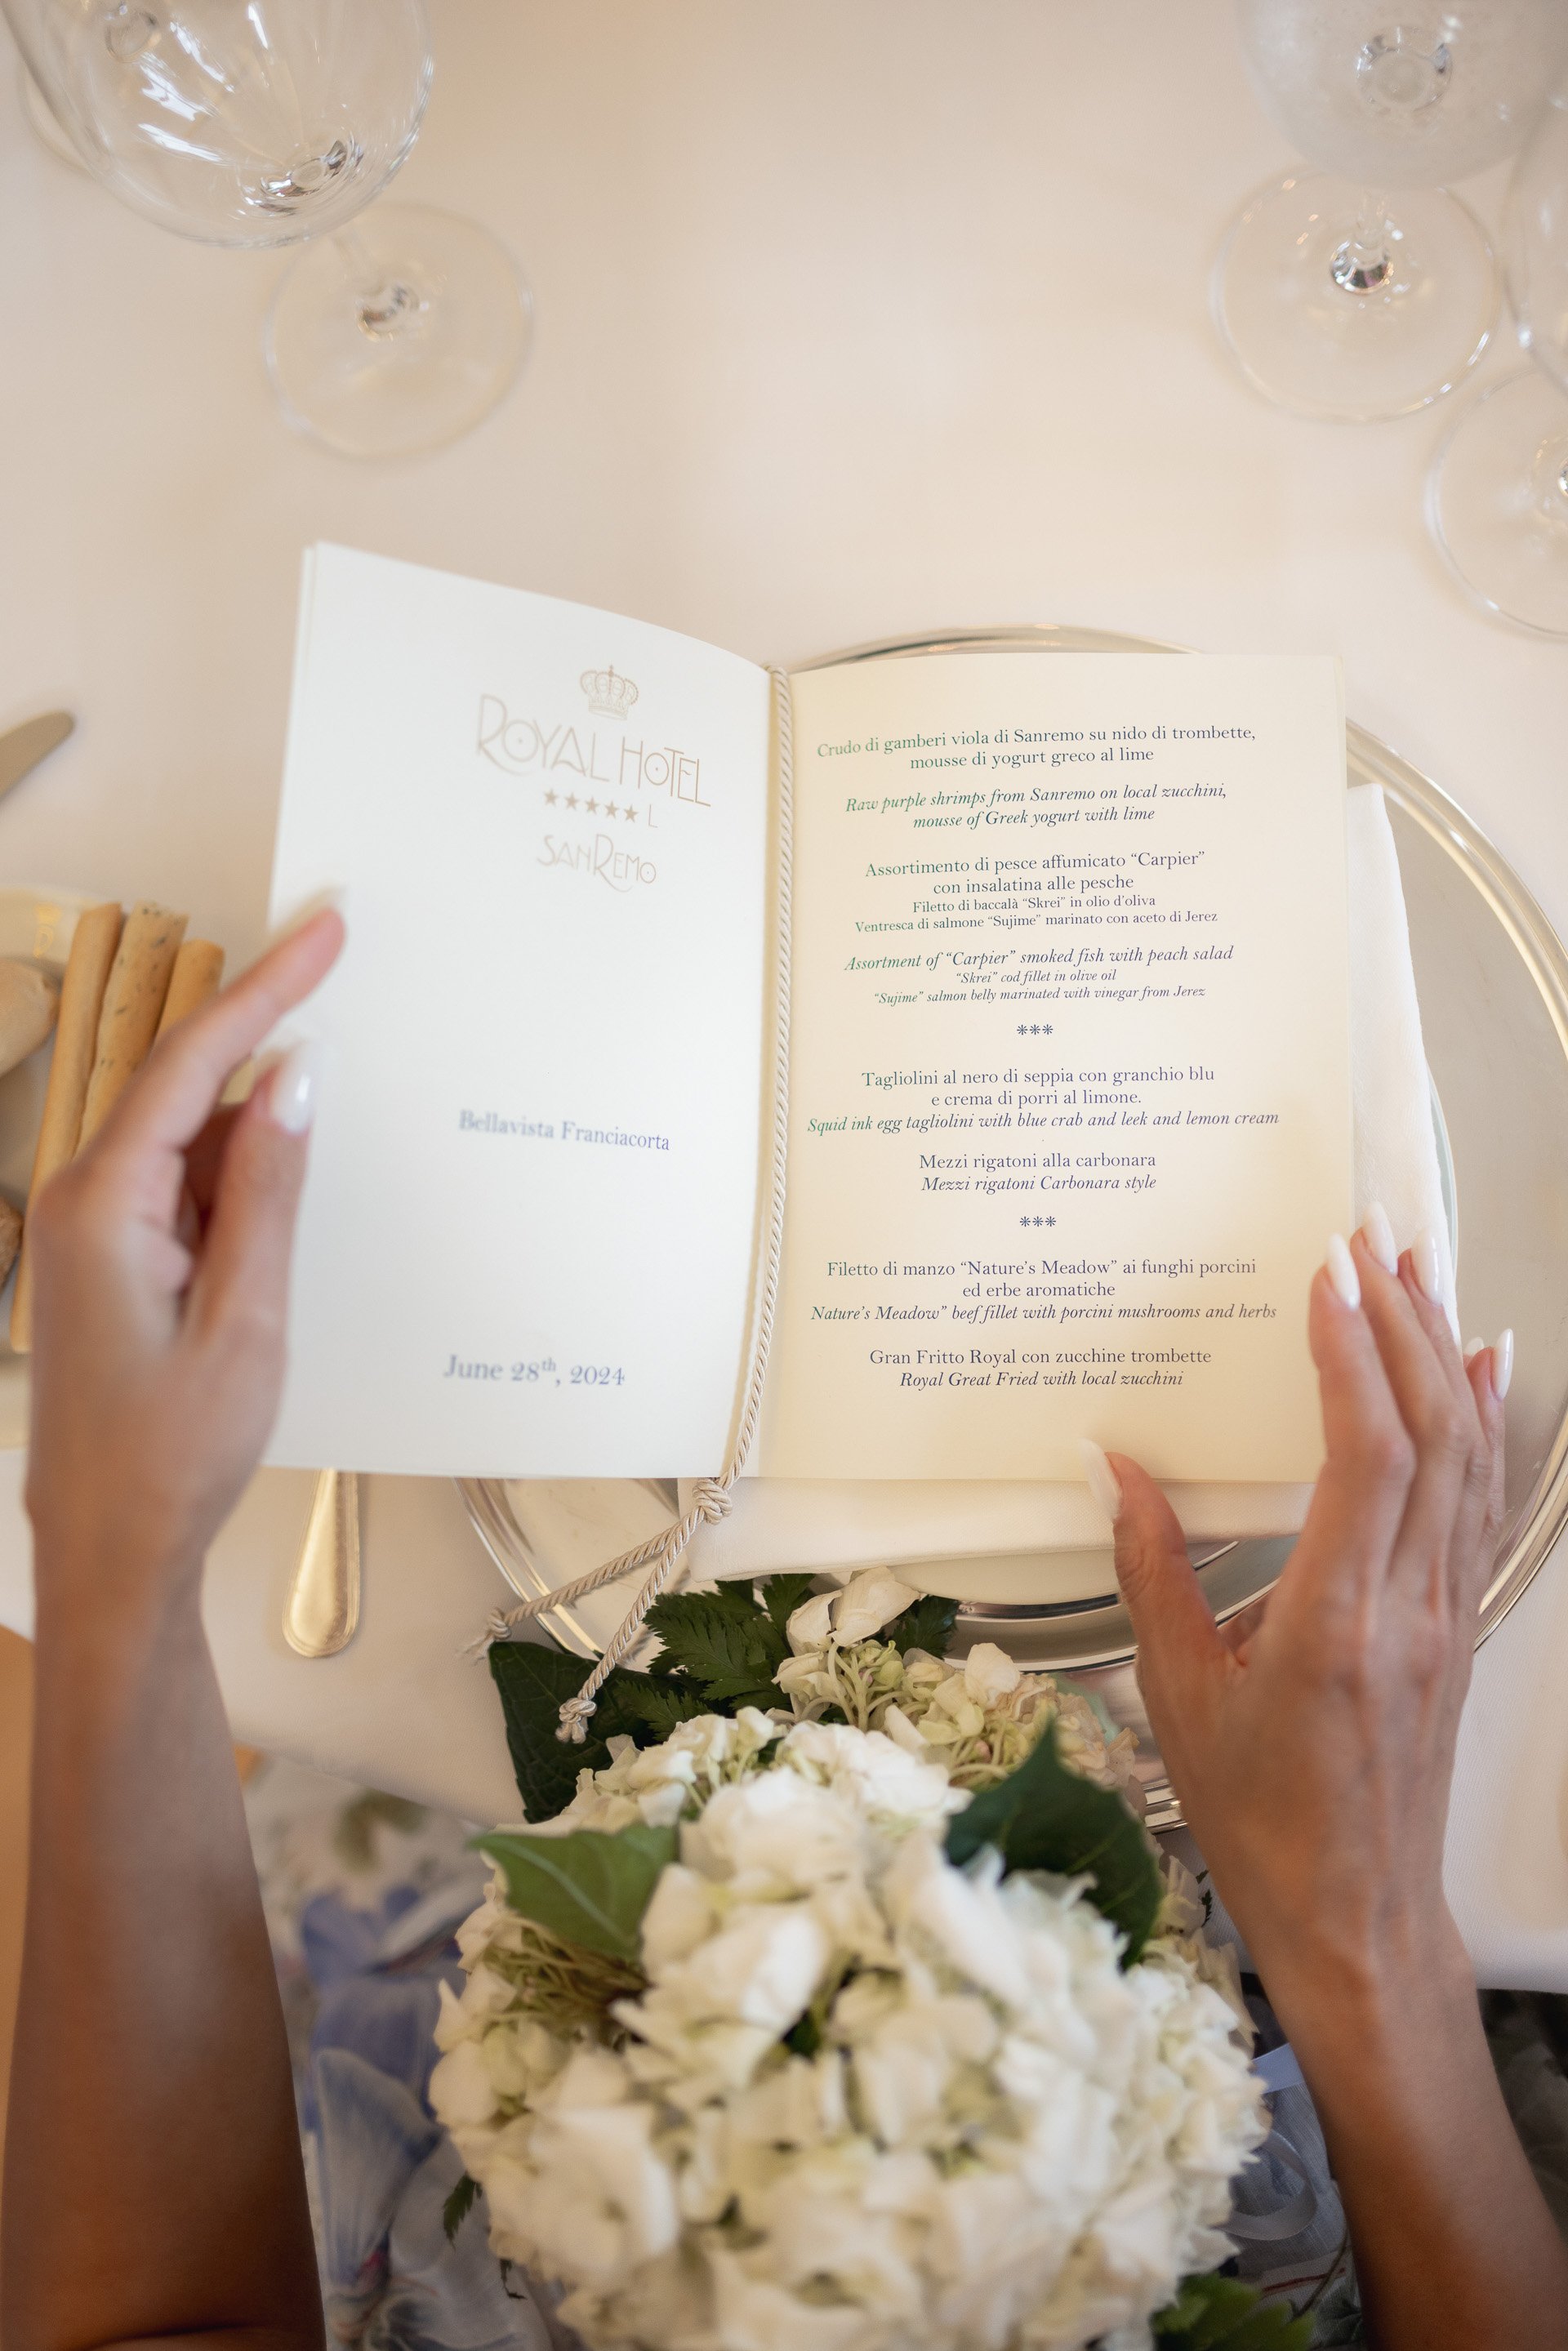 ROYAL HOTEL
★★★★★ L
SANREMO
Bellavista Franciacorta
June 28th, 2024
Crudo di gamberi viola di Sanremo su nido di trombette,
mousse di yogurt greco al lime
Raw purple shrimps from Sanremo on local zucchini,
mousse of Greek yogurt with lime
Assortimento di pesce affumicato “Carpier”
con insalatina alle pesche
Filetto di baccalà “Skrei” in olio d’oliva
Ventresca di salmone “Sujime” marinato con aceto di Jerez
Assortment of “Carpier” smoked fish with peach salad
“Skrei” cod fillet in olive oil
“Sujime” salmon belly marinated with vinegar from Jerez
***
Tagliolini al nero di seppia con granchio blu
e crema di porri al limone.
Squid ink egg tagliolini with blue crab and leek and lemon cream
Mezzi rigatoni alla carbonara
Mezzi rigatoni Carbonara style
***
Filetto di manzo “Nature’s Meadow” ai funghi porcini
ed erbe aromatiche
Nature’s Meadow” beef fillet with porcini mushrooms and herbs
Gran Fritto Royal con zucchine trombette
Royal Great Fried with local zucchini